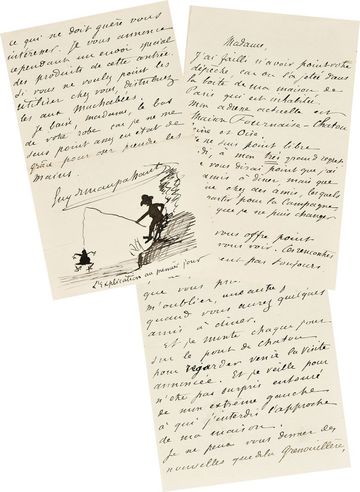 Madame,
J'ai failli n'avoir point votre
dépêche, car on l'a jetée dans
la boîte de ma maison de
Paris qui est inhabitée.
Mon adresse actuelle est
Maison Fournaise - Chatou
Seine et Oise.
ne suis point libre
di, à mon très grand regret
vous dirai point que j'ai
amis à dîner mais que
ne chez des amis, lesquels
partir pour la Campagne
que je ne puis changer
vous offre point
vous voir. Ces rencontres
ent pas toujours.
que vous
m'oublier, une autre
quand vous aurez quelques
amis à dîner.
Et je monte chaque jour
sur le pont de Chatou
pour regarder venir la visite
annoncée. Et je veille pour
n'être pas surpris entouré
de mon extrême gauche
à qui j'interdis l'approche
de ma maison.
Je ne peux vous donner des
nouvelles que de la Grenouillère,
ce qui ne doit guère vous
intéresser. Je vous annonce
cependant un envoi spécial
des produits de cette
Si vous ne voulez point les
utiliser chez vous, distribuez
les aux
Je baise, madame, le bas
de votre robe
suis point en état de
grâce pour
mains.
Guy de Maupassant
L'Explication au premier jour